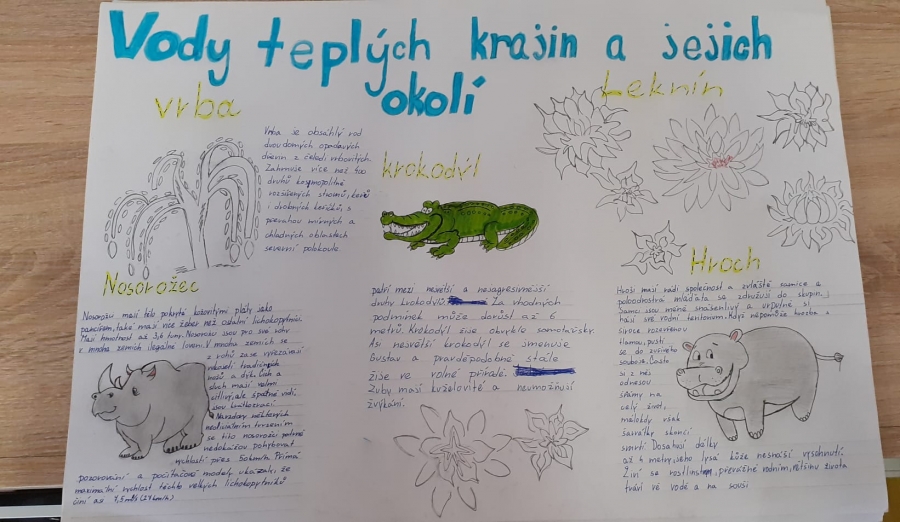 Vody teplých krajin a jejich
okolí
vrba
Vrba je obsáhlý rod
dvoudomých opadavých
dřevin z čeledi vrbovitých.
Zahrnuje více než 400
druhů kosmopolitně
rozšířených stromů, keřů
i drobných keříčků s
převahou mírných a
chladných oblastech
severní polokoule
krokodýl
patří mezi největší a nejagresivnější
druhy krokodýlů. Za vhodných
podmínek může dorůst až 6
metrů. Krokodýl žije obvykle samotářsky.
Asi největší krokodýl se jmenuje
Gustav a pravděpodobně stále
žije ve volné přírodě.
Zuby mají kuželovité a neumožňují
žvýkání.
Leknín
Nosorožec
Nosorožci mají tělo pokryté kožovitými pláty jako
pancířem, také mají více žeber než ostatní lichokopytníci.
Mají hmotnost až 3,6 tuny. Nosorožci jsou pro své rohy
v mnoha zemích ilegálně loveni. V mnoha zemích se
z rohů zase vyřezávají
rukojeti tradičních
nožů a dýk. Čich a
sluch mají velmi
citlivý, ale špatně vidí,
jsou krátkozrací
Navzdory některých
neoficiálním tvrzením
se tito nosorožci patrně
nedokážou pohybovat
rychlostí přes 50km/h. Přímá
pozorování a počítačové modely ukázali, že
maximální rychlost těchto velkých lichokopytníků
činí asi 7,5m/s (27km/h)
Hroch
Hroši mají rádi společnost a zvláště samice a
polodospělá mláďata se združují do skupin.
Samci jsou méně snášenliví a urputně si
hájí své vodní teritorium. Když nepomůže hrozba a
široce rozevřenou
tlamou, pustí
se do zuřivého
souboje. Často
si z něj
odnesou
šrámy na
celý život,
málokdy však
šarvátky skončí
smrtí. Dosahují délky
až 4 metry, jeho lysá kůže nesnáší vyschnutí.
Živí se rostlinstvem, převážně vodním, většinu života
tráví ve vodě a na souši